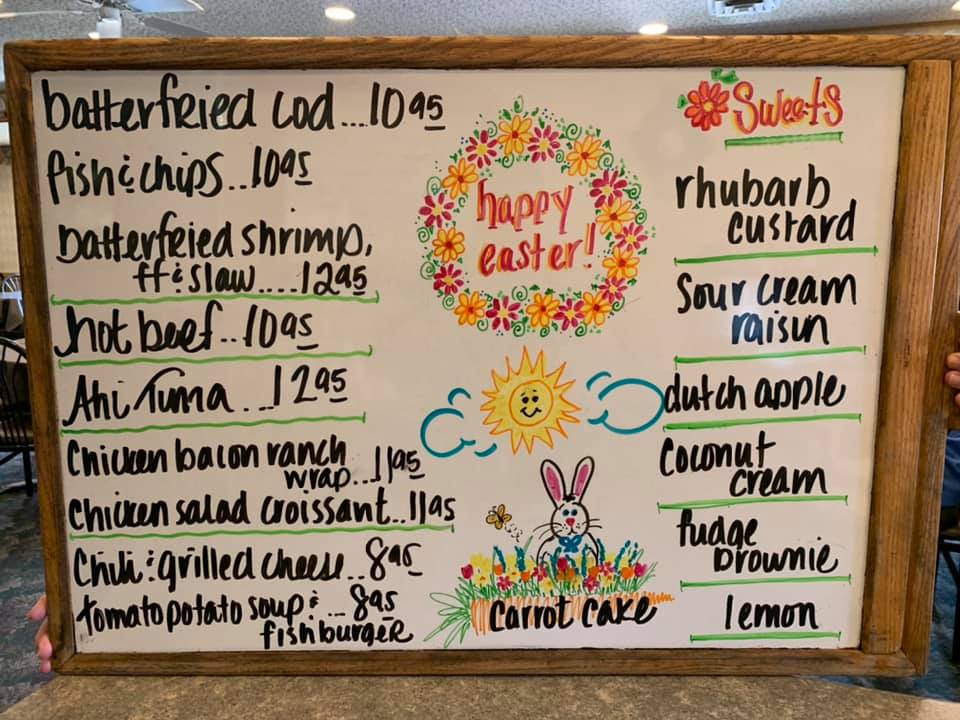 batterfried cod...10 95
fish & chips..10 95
batterfried shrimp,
ff & slaw....12 95
hot beef..10 95
Ahi Tuna...12 95
Chicken bacon ranch
wrap...11 95
Chicken salad croissant..11 95
Chili & grilled cheese..8 95
tomato potato soup & ...8 95
fishburger
happy
easter!
carrot cake
Sweets
rhubarb
custard
Sour cream
raisin
dutch apple
Coconut
cream
fudge
brownie
lemon